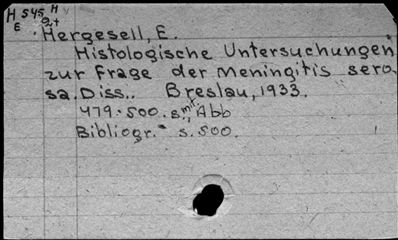 H 545 H
E 2+
Hergesell, E.
Histologische Untersuchungen
zur Frage der Meningitis sero
sa. Diss.. Breslau, 1933.
479-500. s., mit. Abb
Bibliogr. s. 500.